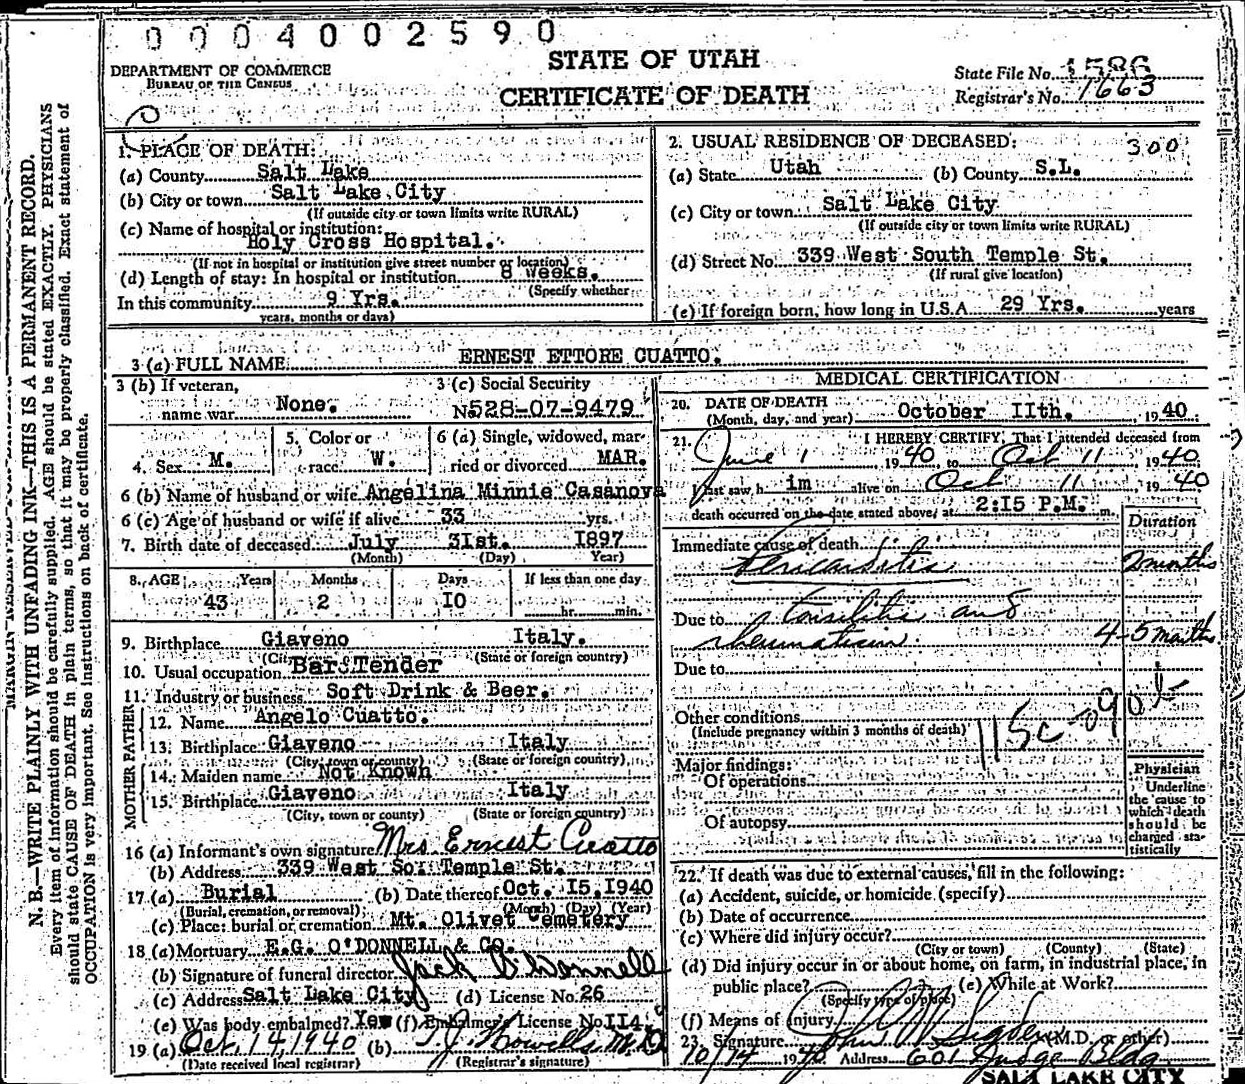 0004002590
STATE OF UTAH
DEPARTMENT OF COMMERCE
BUREAU OF THE CENSUS
CERTIFICATE OF DEATH
State File No. 1586
Registrar's No. 1663
1. PLACE OF DEATH:
(a) County Salt Lake
(b) City or town Salt Lake City
(If outside city or town limits write RURAL)
(c) Name of hospital or institution:
Holy Cross Hospital.
(If not in hospital or institution give street number or location)
(d) Length of stay: In hospital or institution 8 Weeks.
(Specify whether
In this community 9 Yrs.
years, months or days)
2. USUAL RESIDENCE OF DECEASED: 300
(a) State Utah (b) County S.L.
(c) City or town Salt Lake City
(If outside city or town limits write RURAL)
(d) Street No. 339 West South Temple St.
(If rural give location)
(e) If foreign born, how long in U.S.A. 29 Yrs. years
3 (a) FULL NAME ERNEST ETTORE CUATTO.
3 (b) If veteran, name war None.
3 (c) Social Security
No. 528-07-9479
4. Sex M.
5. Color or race W.
6 (a) Single, widowed, married or divorced MAR.
6 (b) Name of husband or wife Angelina Minnie Casanova
6 (c) Age of husband or wife if alive 33 yrs.
7. Birth date of deceased: July 31st. 1897
(Month) (Day) (Year)
8. AGE Years Months Days If less than one day
43 2 10 hr. min.
9. Birthplace Giaveno Italy.
(State or foreign country)
10. Usual occupation Bar Tender
11. Industry or business Soft Drink & Beer.
FATHER
12. Name Angelo Cuatto.
13. Birthplace Giaveno Italy
(City, town or county) (State or foreign country)
MOTHER
14. Maiden name Not Known
15. Birthplace Giaveno Italy
(City, town or county) (State or foreign country)
16 (a) Informant's own signature Mrs Ernest Cuatto
(b) Address 339 West So. Temple St.
17 (a) Burial (b) Date thereof Oct. 15, 1940
(Burial, cremation, or removal) (Month) (Day) (Year)
(c) Place: burial or cremation Mt. Olivet Cemetery
18 (a) Mortuary E.G. O'DONNELL & CO.
(b) Signature of funeral director Jack O'Donnell
(c) Address Salt Lake City (d) License No. 26
(e) Was body embalmed? Yes (f) Embalmer's License No. 114
19 (a) Oct. 14, 1940 (b) M.D.
(Date received local registrar) (Registrar's signature)
MEDICAL CERTIFICATION
20. DATE OF DEATH
(Month, day, and year) October 11th. , 1940
21. I HEREBY CERTIFY, That I attended deceased from
June 1 1940, to Oct 11, 1940
I last saw h im alive on Oct 11, 1940
death occurred on the date stated above, at 2:15 P.M. m.
Duration
Immediate cause of death
Pericarditis 2 months
Due to tonsilitis and
rheumatism. 4-5 months
Due to
Other conditions
(Include pregnancy within 3 months of death)
Major findings:
Of operations
Of autopsy
Physician
Underline
the cause to
which death
should be
charged sta-
tistically
22. If death was due to external causes, fill in the following:
(a) Accident, suicide, or homicide (specify)
(b) Date of occurrence
(c) Where did injury occur?
(City or town) (County) (State)
(d) Did injury occur in or about home, on farm, in industrial place, in
public place? (e) While at Work?
(Specify type of place)
(f) Means of injury
23. Signature (M.D. or other)
10/14 1940 Address 601 Judge Bldg
SALT LAKE CITY
N. B.—WRITE PLAINLY WITH UNFADING INK—THIS IS A PERMANENT RECORD.
Every item of information should be carefully supplied. AGE should be stated EXACTLY. PHYSICIANS
should state CAUSE OF DEATH in plain terms, so that it may be properly classified. Exact statement of
OCCUPATION is very important. See instructions on back of certificate.